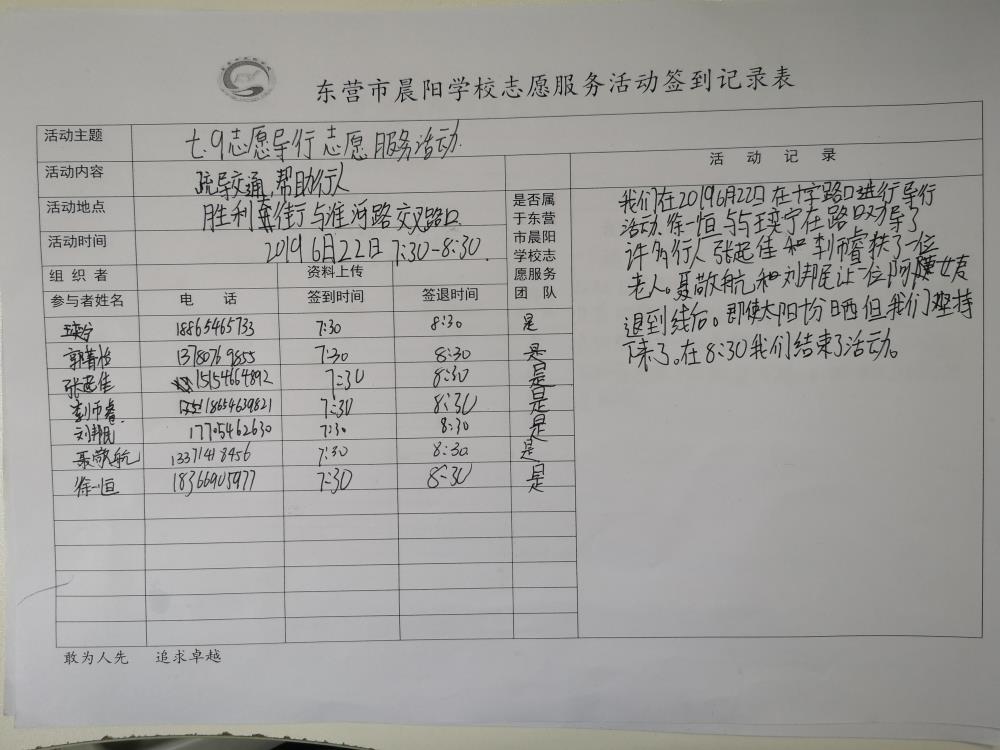 东营市晨阳学校志愿服务活动签到记录表
活动主题 七.9志愿导行志愿服务活动.
活动内容 疏导交通,帮助行人
活动地点 胜利街与淮河路交叉路口
活动时间 2019 6月22日 7:30-8:30.
是否属于东营市晨阳学校志愿服务团队
活动记录
组织者 资料上传
参与者姓名 电话 签到时间 签退时间
王奕宁 18865465733 7:30 8:30 是
郭 13780769855 7:30 8:30 是
张起佳 15154664892 7:30 8:30 是
李师睿 18654639821 7:30 8:30 是
刘邦民 17705462630 7:30 8:30 是
聂敬航 13371418456 7:30 8:30 是
徐一恒 18366905977 7:30 8:30 是
我们在2019 6月22日在十字路口进行导行
活动.徐一恒与与王奕宁在路口劝导了
许多行人张起佳和李师睿扶了一位
老人。聂敬航和刘邦民让一位阿姨
退到线后。即使太阳十分日西但我们坚持
下来了。在8:30我们结束了活动。
敢为人先 追求卓越